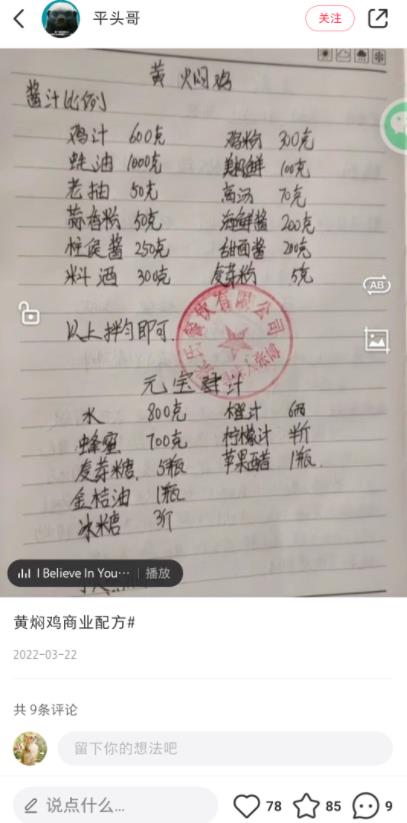 平头哥
关注
黄焖鸡
酱汁比例
鸡汁 600克 鸡粉 300克
蚝油 1000克 美极鲜 100克
老抽 50克 高汤 70克
蒜香粉 50克 海鲜酱 200克
柱侯酱 250克 甜面酱 200克
料酒 300克 麦芽粉 5克
以上拌匀即可.
元宝肆汁
水 800克 橙汁 6瓶
蜂蜜 700克 柠檬汁 半斤
麦芽糖. 5瓶 苹果醋 1瓶.
金桔油 1瓶
冰糖 3斤
AB
I Believe In You… | 播放
黄焖鸡商业配方#
2022-03-22
共 9条评论
留下你的想法吧
说点什么...
78
85
9